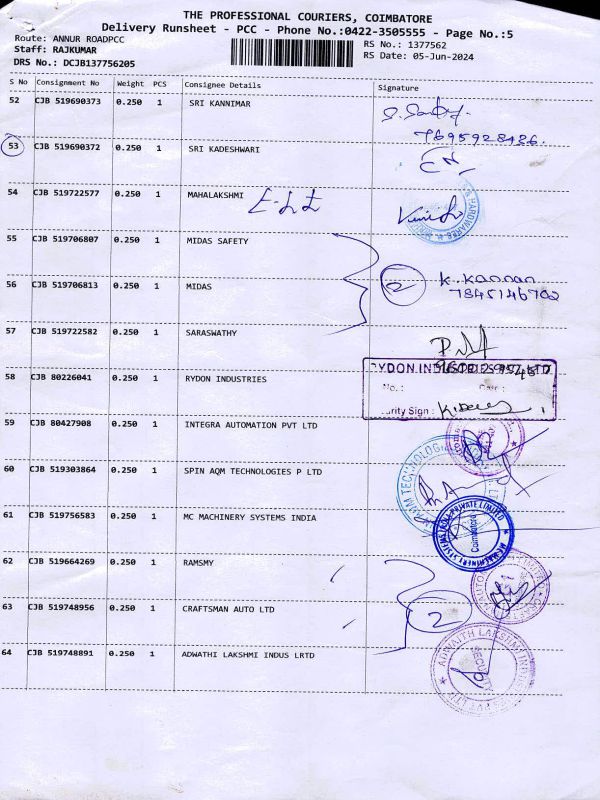 THE PROFESSIONAL COURIERS, COIMBATORE
Delivery Runsheet - PCC - Phone No.:0422-3505555 - Page No.:5
Route: ANNUR ROADPCC
RS No.: 1377562
Staff: RAJKUMAR
RS Date: 05-Jun-2024
DRS No.: DCJB137756205
S No Consignment No Weight PCS Consignee Details Signature
52 CJB 519690373 0.250 1 SRI KANNIMAR
7695928426.
53 CJB 519690372 0.250 1 SRI KADESHWARI
54 CJB 519722577 0.250 1 MAHALAKSHMI
HARDWARES
55 CJB 519706807 0.250 1 MIDAS SAFETY
56 CJB 519706813 0.250 1 MIDAS 2 K. Kannan
7845146702
57 CJB 519722582 0.250 1 SARASWATHY
58 CJB 80226041 0.250 1 RYDON INDUSTRIES
RYDON INDUSTRIES PVT LTD
No.: Date:
urity Sign:
59 CJB 80427908 0.250 1 INTEGRA AUTOMATION PVT LTD
60 CJB 519303864 0.250 1 SPIN AQM TECHNOLOGIES P LTD
61 CJB 519756583 0.250 1 MC MACHINERY SYSTEMS INDIA
MC MACHINERY SYSTEMS INDIA PRIVATE LIMITED
Coimbatore
62 CJB 519664269 0.250 1 RAMSMY
63 CJB 519748956 0.250 1 CRAFTSMAN AUTO LTD 2
64 CJB 519748891 0.250 1 ADWATHI LAKSHMI INDUS LRTD
ADWAITH LAKSHMI INDUSTRIES PVT LTD
SECURITY